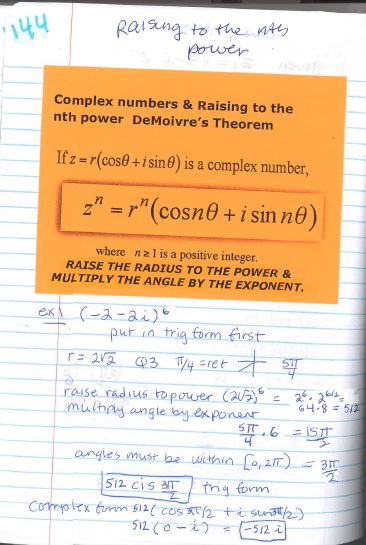 144
Raising to the nth
power
Complex numbers & Raising to the
nth power DeMoivre's Theorem
If z = r(cosθ + i sinθ) is a complex number,
zⁿ = rⁿ(cosnθ + i sin nθ)
where n ≥ 1 is a positive integer.
RAISE THE RADIUS TO THE POWER &
MULTIPLY THE ANGLE BY THE EXPONENT.
ex) (-2-2i)⁶
put in trig form first
r = 2√2 Q3 π/4 = ref 5π/4
raise radius to power (2√2)⁶ = 2⁶ · 2^(6/2) =
64·8 = 512
multiply angle by exponent
5π/4 · 6 = 15π/2
angles must be within [0, 2π) = 3π/2
512 cis 3π/2 trig form
Complex form 512(cos 3π/2 + i sin 3π/2)
512(0 - i) = -512 i